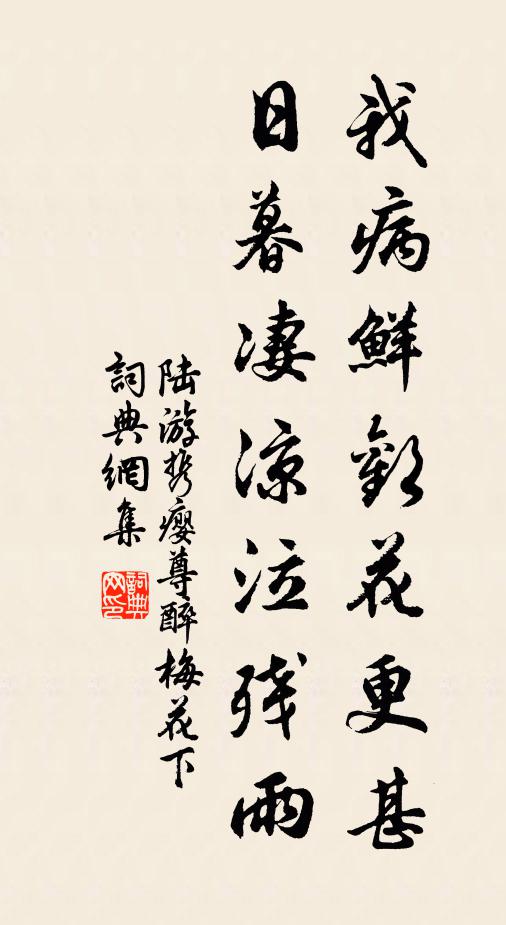 我病鮮歡花更甚
日暮凄涼泣残雨
陆游携瘿尊醉梅花下
詞典網集
詞典網印